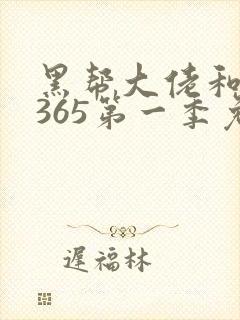 黑帮大佬和
365第一季免
遲福林